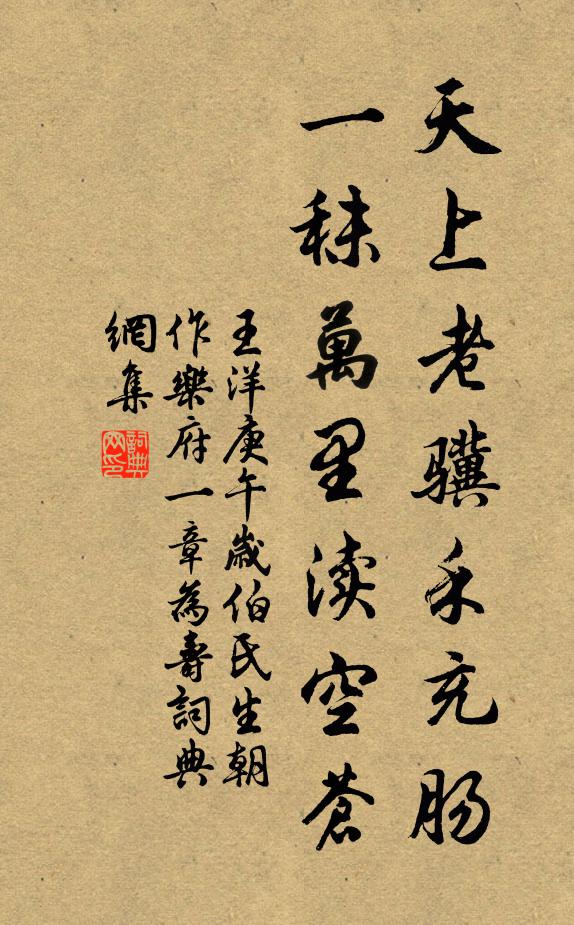 天上老骥禾充肠
一秣萬里渎空蒼
王洋庚午歲伯氏生朝
作樂府一章為壽詞典
網集
詞典網印